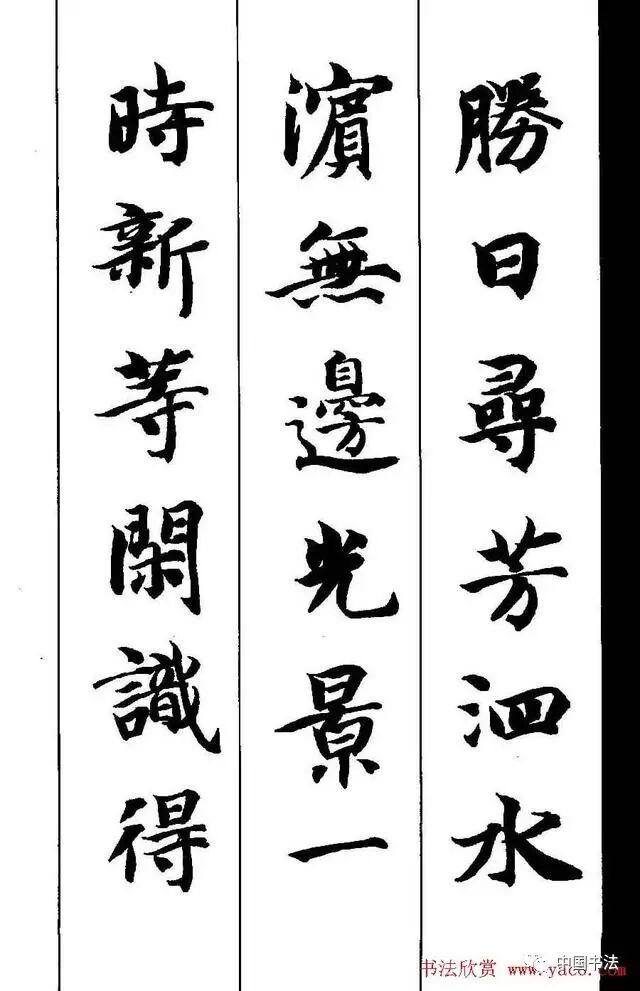 勝日尋芳泗水
濵無邊光景一
時新等閑識得
书法欣赏 www.yaco.com
中国书法